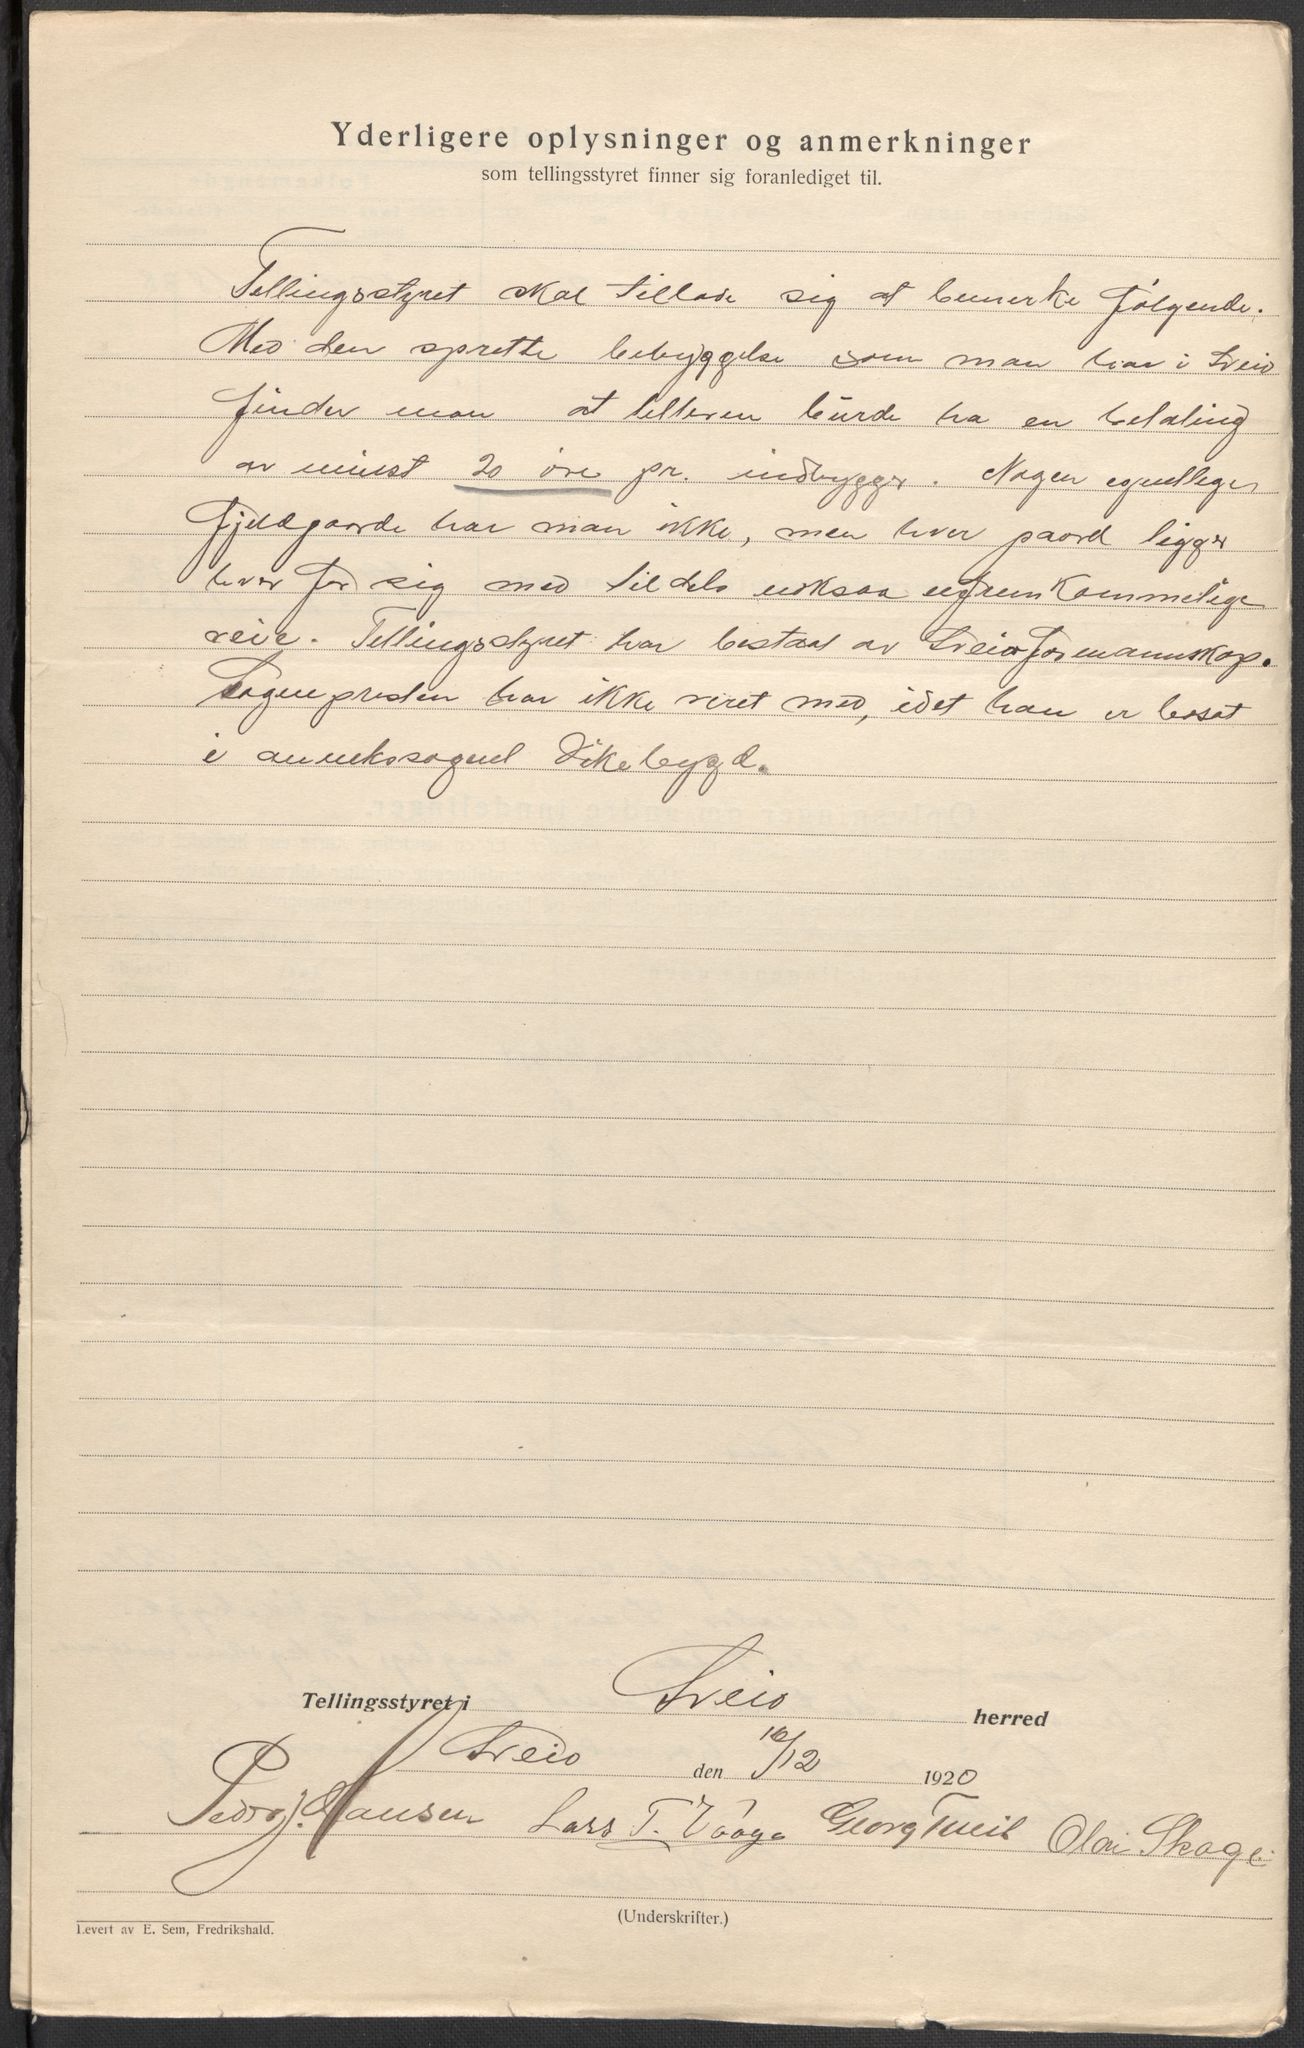 Yderligere oplysninger og anmerkninger
som tellingsstyret finner sig foranlediget til.
Tellingsstyret skal tillade sig at bemerke følgende.
Med den spredte bebyggelse som man har i Sveio
finder man at telleren burde ha en betaling
av minst 20 øre pr. indbygger. Nogen egentlige
fjeldgaarde har man ikke, men hver gaard ligger
hver for sig med tildels noksaa ufremkommelige
veie. Tellingsstyret har bestaat av Sveio formannskap.
Sognepresten har ikke veret med, idet han er bosat
i annekssognet Vikebygd.
Tellingsstyret i Sveio herred
Sveio den 16/12 1920
Pedro J. Hansen Lars T. Vaage Georg Tveit Olai Skage
(Underskrifter.)
Levert av E. Sem, Fredrikshald.